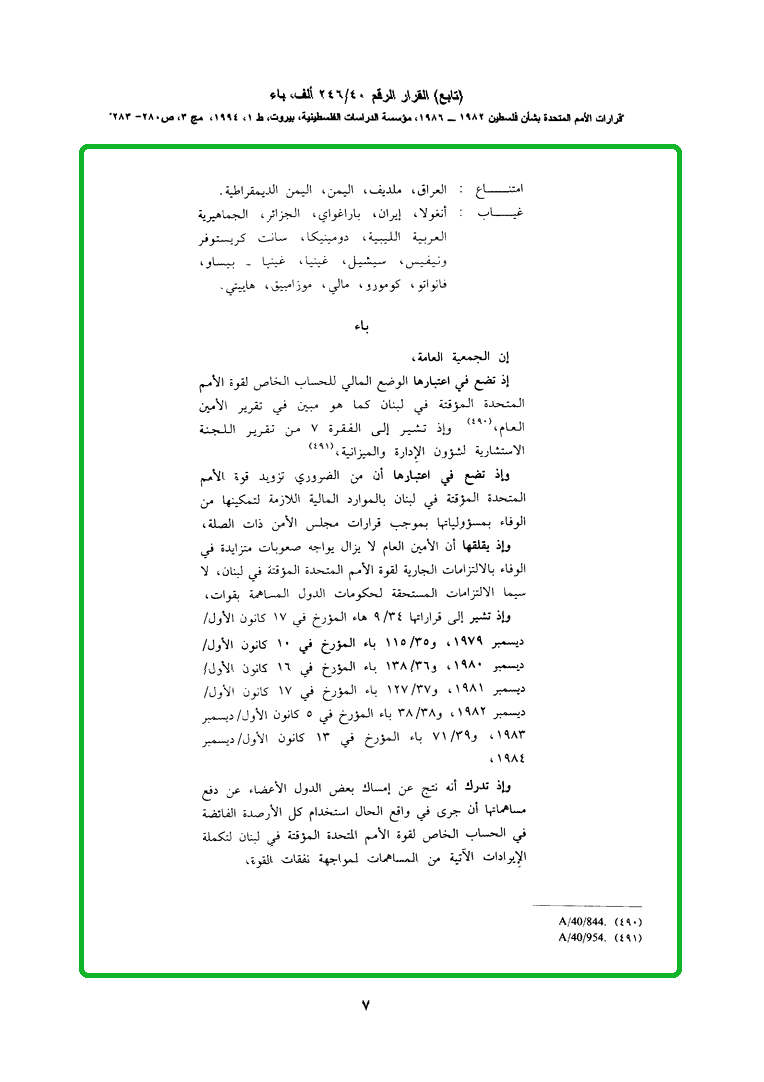 (تابع) القرار الرقم ٢٤٦/٤٠ ألف، باء
"قرارات الأمم المتحدة بشأن فلسطين ١٩٨٢ ــ ١٩٨٦، مؤسسة الدراسات الفلسطينية، بيروت، ط ١، ١٩٩٤، مج ٣، ص٢٨٠- ٢٨٣"
امتنـــــاع : العراق، ملديف، اليمن، اليمن الديمقراطية.
غيـــــاب : أنغولا، إيران، باراغواي، الجزائر، الجماهيرية
العربية الليبية، دومينيكا، سانت كريستوفر
ونيفيس، سيشيل، غينيا، غينيا ـ بيساو،
فانواتو، كومورو، مالي، موزامبيق، هاييتي.
باء
إن الجمعية العامة،
إذ تضع في اعتبارها الوضع المالي للحساب الخاص لقوة الأمم
المتحدة المؤقتة في لبنان كما هو مبين في تقرير الأمين
العام،(٤٩٠) وإذ تشير إلى الفقرة ٧ من تقرير اللجنة
الاستشارية لشؤون الإدارة والميزانية،(٤٩١)
وإذ تضع في اعتبارها أن من الضروري تزويد قوة الأمم
المتحدة المؤقتة في لبنان بالموارد المالية اللازمة لتمكينها من
الوفاء بمسؤولياتها بموجب قرارات مجلس الأمن ذات الصلة،
وإذ يقلقها أن الأمين العام لا يزال يواجه صعوبات متزايدة في
الوفاء بالالتزامات الجارية لقوة الأمم المتحدة المؤقتة في لبنان، لا
سيما الالتزامات المستحقة لحكومات الدول المساهمة بقوات،
وإذ تشير إلى قراراتها ٩/٣٤ هاء المؤرخ في ١٧ كانون الأول/
ديسمبر ١٩٧٩، و١١٥/٣٥ باء المؤرخ في ١٠ كانون الأول/
ديسمبر ١٩٨٠، و١٣٨/٣٦ باء المؤرخ في ١٦ كانون الأول/
ديسمبر ١٩٨١، و١٢٧/٣٧ باء المؤرخ في ١٧ كانون الأول/
ديسمبر ١٩٨٢، و٣٨/٣٨ باء المؤرخ في ٥ كانون الأول/ديسمبر
١٩٨٣، و٧١/٣٩ باء المؤرخ في ١٣ كانون الأول/ديسمبر
١٩٨٤،
وإذ تدرك أنه نتج عن إمساك بعض الدول الأعضاء عن دفع
مساهماتها أن جرى في واقع الحال استخدام كل الأرصدة الفائضة
في الحساب الخاص لقوة الأمم المتحدة المؤقتة في لبنان لتكملة
الإيرادات الآتية من المساهمات لمواجهة نفقات القوة،
(٤٩٠) A/40/844.
(٤٩١) A/40/954.
٧